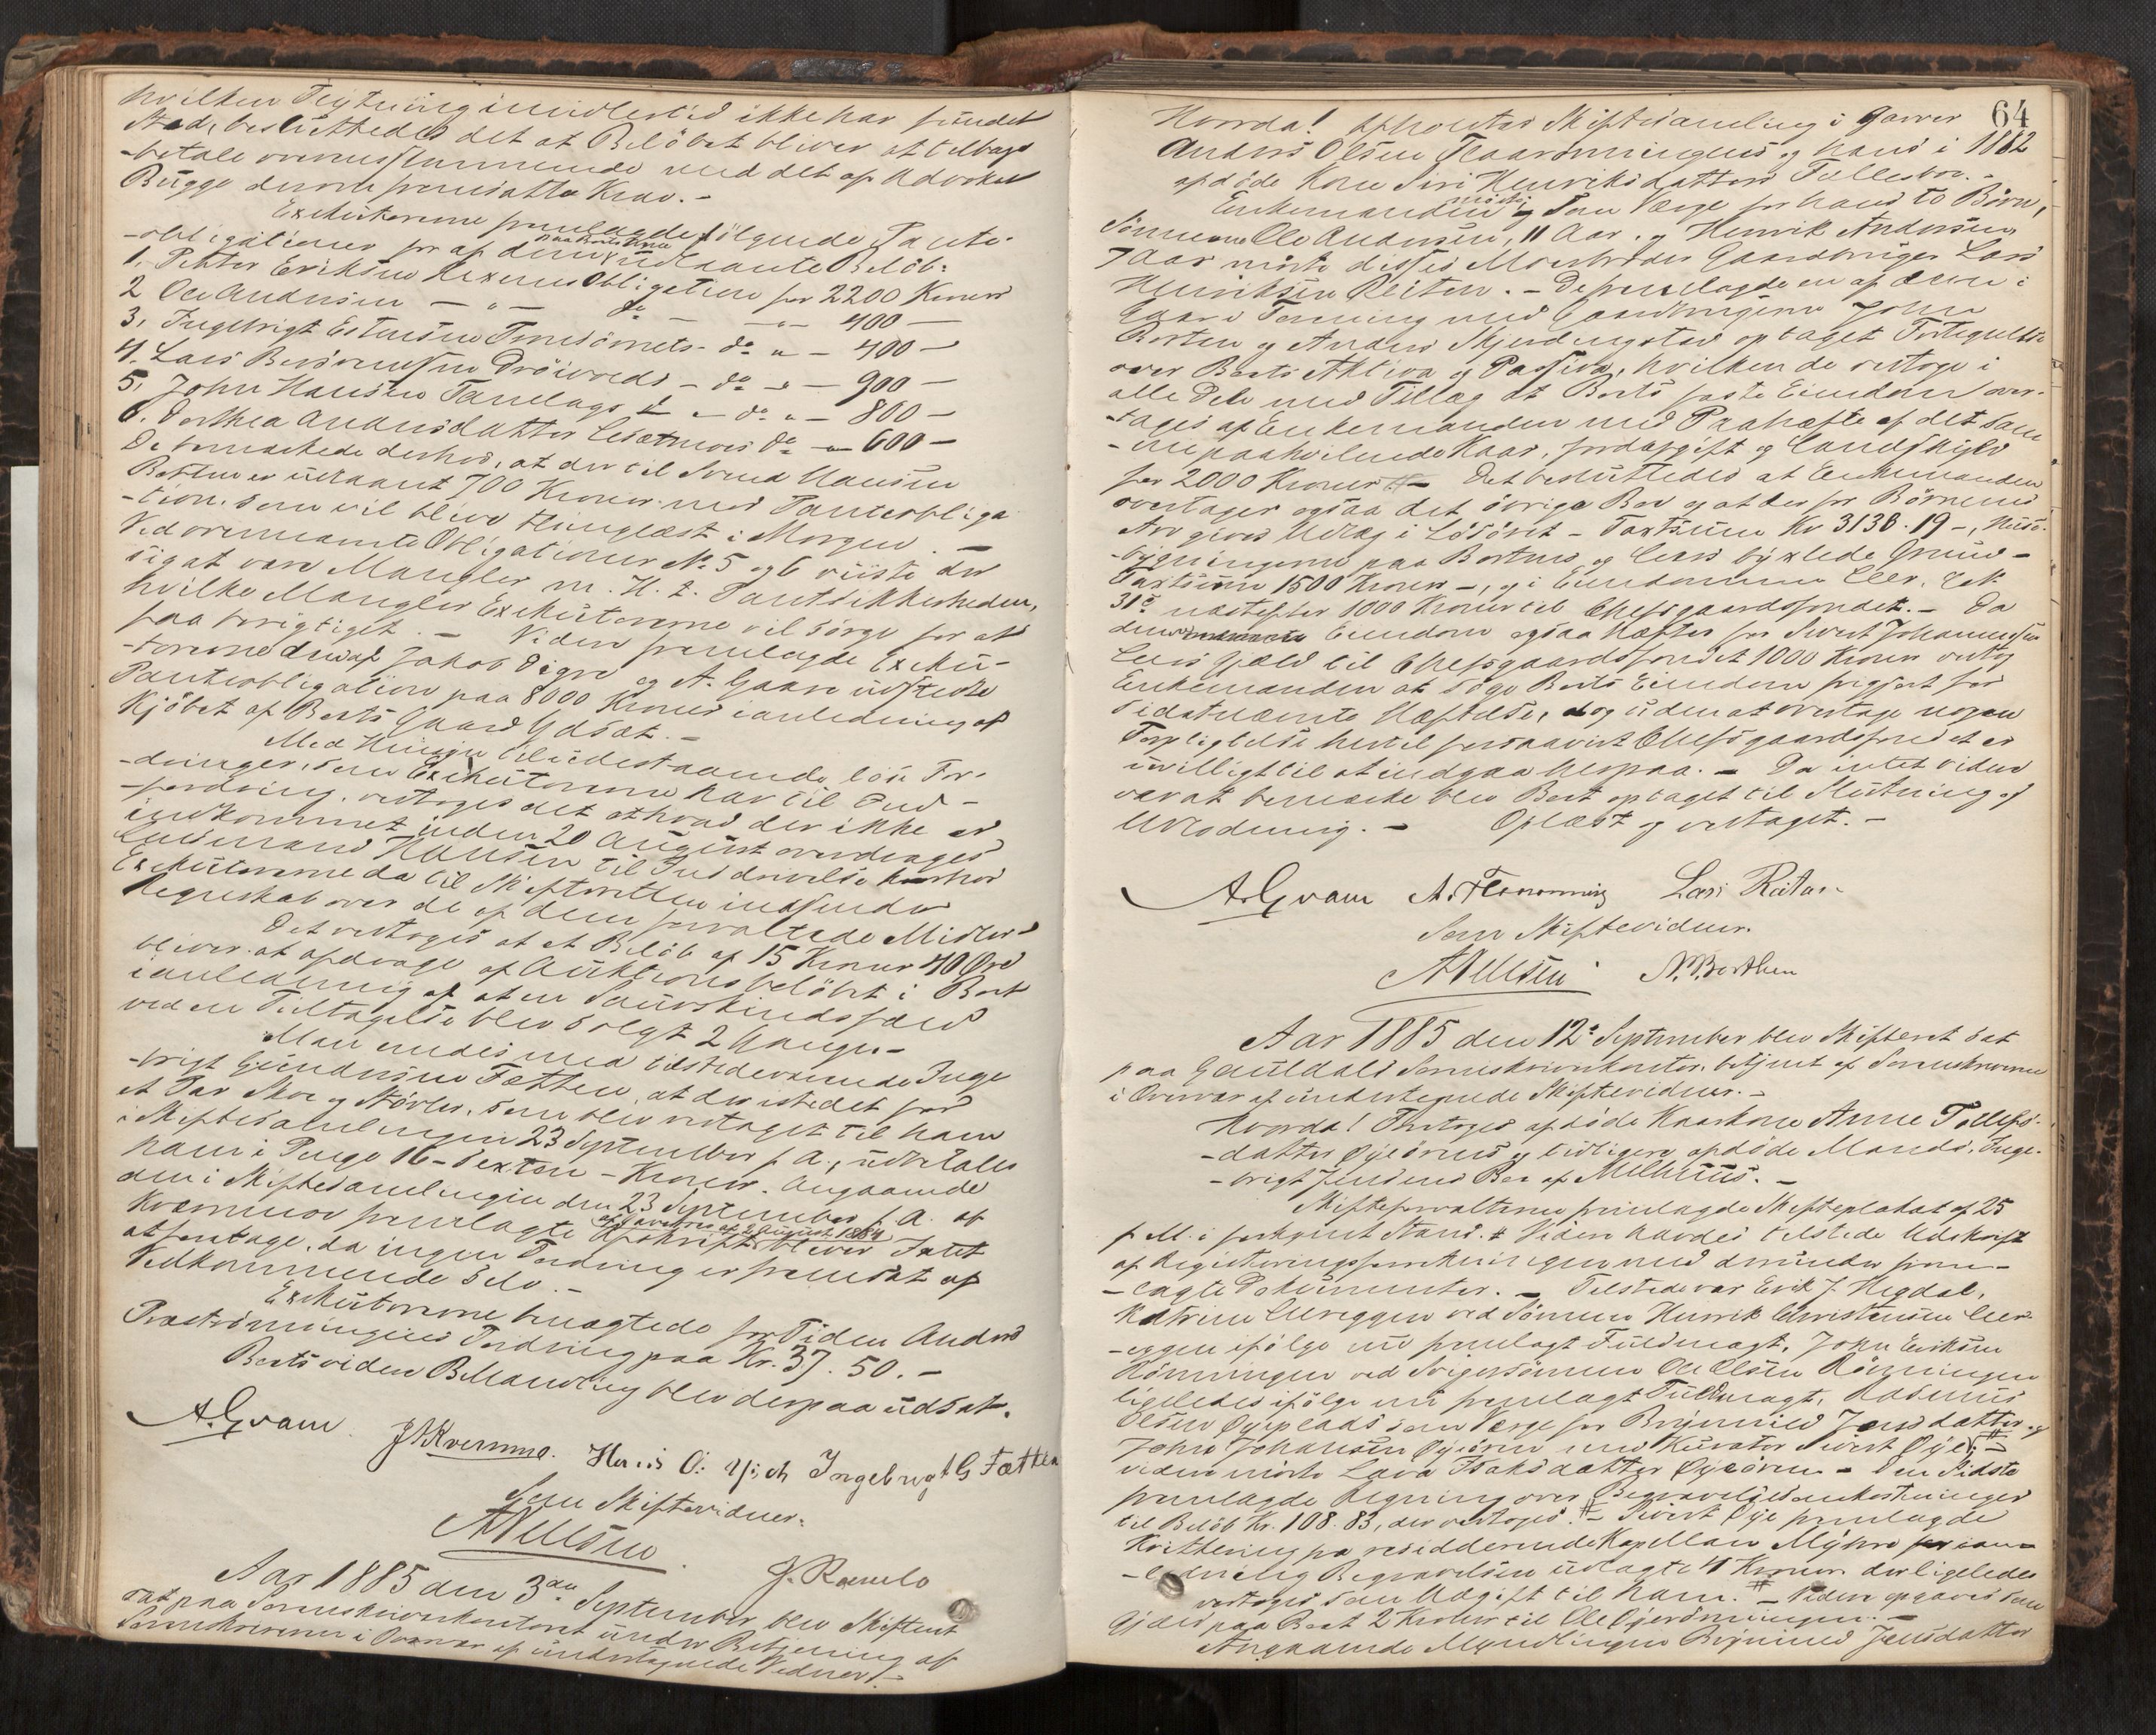 hvilken Flytning imidlertid ikke har fundet
Sted, besluttedes det at Beløbet bliver at tilbage
-betale overensstemmende med det af Advokat
Bugge derom fremsatte Krav. -
Exekutorerne fremlagde følgende Pante-
-obligationer for af dem udlaante Beløb:
1, Petter Eriksen Obligation for 2200 Kroner
2 Ole Andersen - " - do - " - 400 -
3, Ingebrigt Estensen - do " - 400 -
4. Lars - do - " - 900 -
5, John Hansen - do " - 800 -
6. Dorthea Andersdatter do - " - 600 -
De bemærkede derhos, at der til Svend Hansen
er udlaant 700 Kroner mod Panteobliga
-tion, som vil blive thinglæst i Morgen. -
Ved ovennævnte Obligationer No 5 og 6 viiste der
sig at være Mangler m. H. t. Pantesikkerheden,
hvilke Mangler Exekutorerne vil sørge for at
faa berigtiget. - Viden fremlagde Exeku-
-torerne den af Jakob Digre og A. Gaare udstedte
Panteobligation paa 8000 Kroner i anledning af
Kjøbet af Boets Gaard
Med Hensyn til udestaaende løse For-
-dringer, som Exekutorerne har til Ind-
-fordring, vedtoges det at hvad der ikke er
indkommet inden 20 August overdrages
Lensmand Hansen til Inddrivelse hvorhos
Exekutorerne da til Skifteretten indsender
Regnskab over de af dem forvaltede Midler
Det vedtoges at et Beløb af 15 Kroner 40 Øre
bliver at afdrage af Auktionsbeløbet i Boet
i anledning af at en Saueskindsfæld
ved en Feiltagelse blev solgt 2 Gange. -
Man enedes med tilstedeværende Inge
-brigt Gundersen Fætten, at der istedet for
et Par Skoe og Støvler, som blev vedtaget til ham
i Skiftesamlingen 23 September f. A., udbetales
ham i Penge 16 - sexten - Kroner. Angaaende
den i Skiftesamlingen den 23 September f. A. af
Kvernmo fremlagte Afskrift af 2 August 1884 bliver Intet
at foretage, da ingen Fordring er fremsat af
Vedkommende selv. -
Exekutorerne benægtede for Tiden Anders
Fordring paa Kr. 37. 50. -
Boets videre Behandling blev derpaa udsat.
A. Qvam. J Kvernmo. Hans O: Ingebrigt G Fætten
Som Skiftevidner:
A Nilsen. J. Ramlo
Aar 1885 den 3die September blev Skifteret
sat paa Sorenskriverkontoret under Betjening af
Sorenskriveren i Overvær af undertegnede Vidner! -
64
Hvorda! afholdtes Skiftesamling i
Anders Olsen og hans i 1882
afdøde Kone Siri Henriksdatters Fællesbo. -
Enkemanden mødte og som Værge for hans to Børn,
Sønnerne Ole Andersen, 11 Aar, og Henrik Andersen
7 Aar mødte disses Morbroder Gaardbruger Lars
Henriksen Reiten. - De fremlagde en af dem i
Forening med Gaardbrugerne John
og Anders optaget Fortegnelse
over Boets Aktiva og Passiva, hvilken de vedtoge i
alle Dele med Tillæg at Boets faste Eiendom over-
-tages af Enkemanden med Paahæfte af det sam
-me paahvilende Kaar, Jordafgift og Landskyld
for 2000 Kroner - Det besluttedes at Enkemanden
overtager ogsaa det øvrige Bo og at der for Børnenes
Arv gives Udlæg i Løsøret - Taxtsum Kr 3138.19 -, Huse-
-bygningerne paa bygslede Grund -
Taxtsum 1500 Kroner -, og i Eiendommen Leer,
næstefter 1000 Kroner til Chefsgaardsfondet. - Da
denne Eiendom ogsaa hæfter for Sivert Johannessen
Leers Gjæld til Chefsgaardsfondet 1000 Kroner vedtog
Enkemanden at søge Boets Eiendom frigjort for
sidstnævnte Hæftelse, dog uden at overtage nogen
Forpligtelse hertil forsaavidt Chefsgaardsfondet er
uvilligt til at indgaa herpaa. - Da intet videre
var at bemærke blev Boet optaget til Slutning og
Udlodning. - Oplæst og vedtaget. -
A. Qvam A. Lars Reitan
Som Skiftevidner.
A Nilsen N. Borthen
Aar 1885 den 12te September blev Skifteret sat
paa Gauldals Sorenskriverkontor, betjent af Sorenskriveren
i Overvær af undertegnede Skiftevidner. -
Hvorda! Foretoges afdøde Kaarkone Anne Tollefs-
-datter Øyeørens og tidligere afdøde Mands, Inge-
-brigt Jensens Bo af Melhuus. -
Skifteforvalteren fremlagde Skifteplakat af 25
f. M. i forkyndt Stand. # Viden havdes tilstede Udskrift
af Registreringsforretningen med derunder frem-
-lagte Dokumenter. - Tilstede var Erik J. Hegdal,
Katrine ved Sønnen Henrik Christensen
-eggen ifølge nu fremlagt Fuldmagt, John Eriksen
Rønningen ved Svigersønnen Ole Olsen Rønningen
ligeledes ifølge nu fremlagt Fuldmagt, Rasmus
Olsen Øyeplads som Værge for Brynnild Jensdatter og
John Johansen Øyeøren med Kurator Sivert Øye; # -
viden mødte Lava Isaksdatter Øyeøren - Den Sidste
fremlagde Regning over Begravelsesomkostninger
til Beløb Kr. 108.83, der vedtoges. # - Sivert Øye fremlagde
Kvittering fra residerende Kapellan for i an-
-ledning Begravelsen udlagte 4 Kroner der ligeledes
vedtoges som Udgift til ham. # - Viden opgaves som
Gjæld paa Boet 2 Kroner til Ole -
Angaaende Myndlingen Brynnild Jensdatter